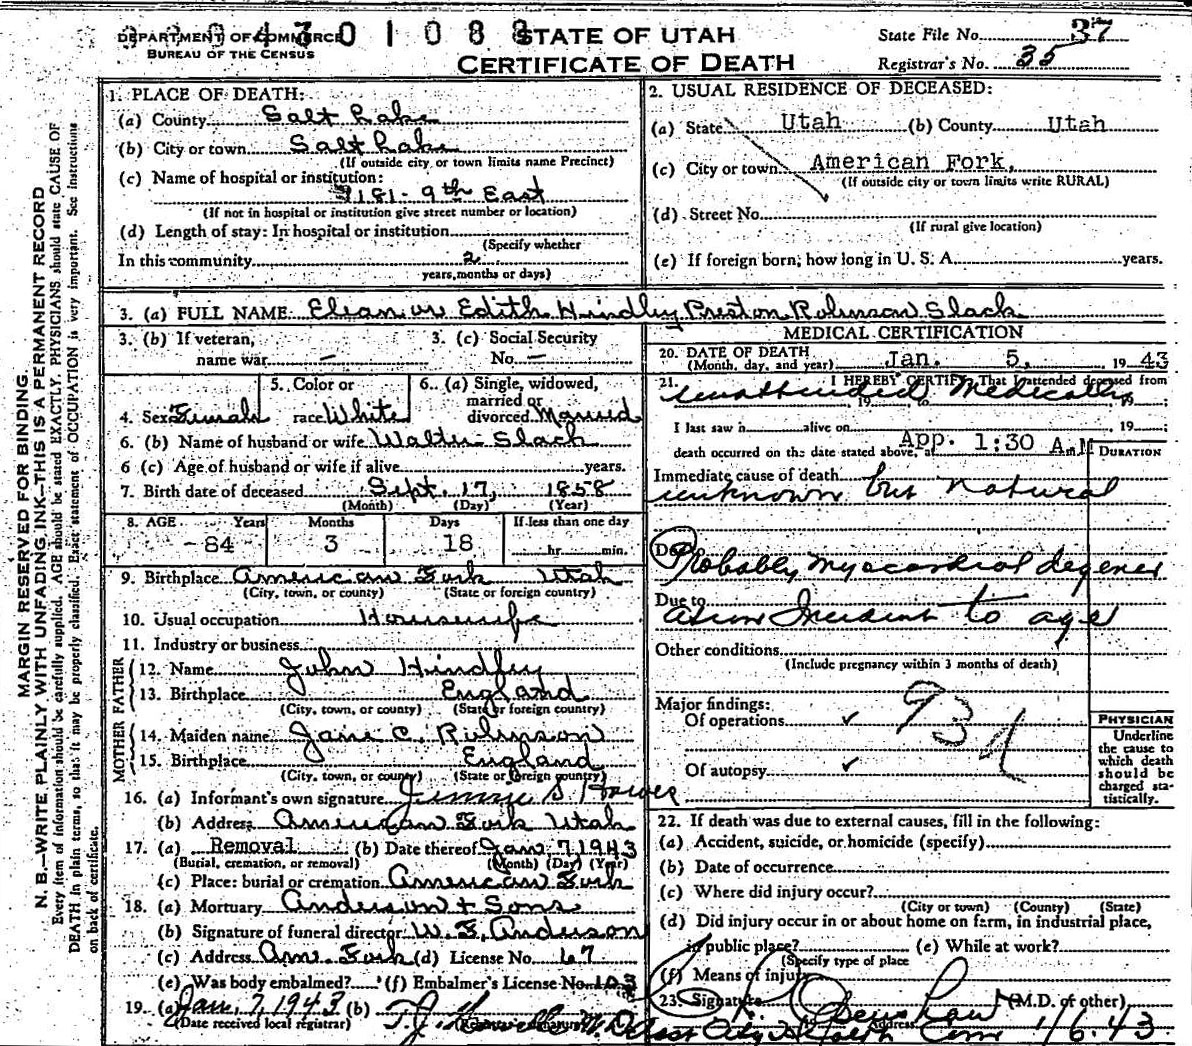 DEPARTMENT OF COMMERCE
BUREAU OF THE CENSUS
0 4 3 0 1 0 8 8
STATE OF UTAH
CERTIFICATE OF DEATH
State File No. 37
Registrar's No. 35
MARGIN RESERVED FOR BINDING.
N. B.—WRITE PLAINLY WITH UNFADING INK—THIS IS A PERMANENT RECORD
Every item of information should be carefully supplied. AGE should be stated EXACTLY. PHYSICIANS should state CAUSE OF
DEATH in plain terms, so that it may be properly classified. Exact statement of OCCUPATION is very important. See instructions
on back of certificate.
1. PLACE OF DEATH:
(a) County Salt Lake
(b) City or town Salt Lake
(If outside city or town limits name Precinct)
(c) Name of hospital or institution:
181 - 9th East
(If not in hospital or institution give street number or location)
(d) Length of stay: In hospital or institution
(Specify whether
In this community 2
years, months or days)
2. USUAL RESIDENCE OF DECEASED:
(a) State Utah (b) County Utah
(c) City or town American Fork,
(If outside city or town limits write RURAL)
(d) Street No.
(If rural give location)
(e) If foreign born; how long in U. S. A. years.
3. (a) FULL NAME: Eleanor Edith Hindley Preston Robinson Slack
3. (b) If veteran, name war —
3. (c) Social Security No. —
4. Sex Female
5. Color or race White
6. (a) Single, widowed, married or divorced Married
6. (b) Name of husband or wife Walter Slack
6 (c) Age of husband or wife if alive years.
7. Birth date of deceased Sept. 17, 1858
(Month) (Day) (Year)
8. AGE Years Months Days If less than one day
84 3 18 hr. min.
9. Birthplace American Fork Utah
(City, town, or county) (State or foreign country)
10. Usual occupation Housewife
11. Industry or business
FATHER
12. Name John Hindley
13. Birthplace England
(City, town, or county) (State or foreign country)
MOTHER
14. Maiden name Jane C. Robinson
15. Birthplace England
(City, town, or county) (State or foreign country)
16. (a) Informant's own signature Jennie S.
(b) Address American Fork Utah
17. (a) Removal (b) Date thereof Jan 7 1943
(Burial, cremation, or removal) (Month) (Day) (Year)
(c) Place: burial or cremation American Fork
18. (a) Mortuary Anderson & Sons
(b) Signature of funeral director W. E. Anderson
(c) Address Am. Fork (d) License No. 67
(e) Was body embalmed? (f) Embalmer's License No. 103
19. (a) Jan. 7, 1943 (b) T. J. Howells M.D.
(Date received local registrar)
MEDICAL CERTIFICATION
20. DATE OF DEATH
(Month, day, and year) Jan. 5, 19 43
21. I HEREBY CERTIFY That I attended deceased from
unattended Medically
19 to 19
I last saw h alive on , 19 ;
death occurred on the date stated above, at App. 1:30 A.M
DURATION
Immediate cause of death
unknown but natural
Due to
Probably myocardial degener
Due to
ation Incident to age
Other conditions
(Include pregnancy within 3 months of death)
Major findings:
Of operations ✓
93d
Of autopsy ✓
PHYSICIAN
Underline
the cause to
which death
should be
charged sta-
tistically.
22. If death was due to external causes, fill in the following:
(a) Accident, suicide, or homicide (specify)
(b) Date of occurrence
(c) Where did injury occur?
(City or town) (County) (State)
(d) Did injury occur in or about home on farm, in industrial place,
in public place? (e) While at work?
(Specify type of place
(f) Means of injury
23. Signature Openshaw (M.D. of other)
Address City Health Com 1/6.43